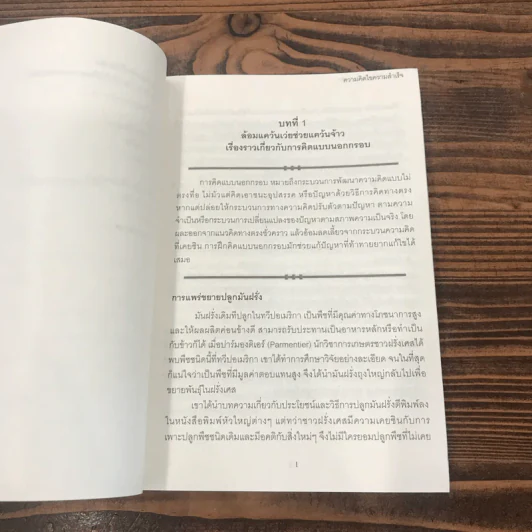 ความคิดไขความสำเร็จ
บทที่ 1
ล้อมแคว้นเว่ยช่วยแคว้นจ้าว
เรื่องราวเกี่ยวกับการคิดแบบนอกกรอบ
การคิดแบบนอกกรอบ หมายถึงกระบวนการพัฒนาความคิดแบบไม่
ตรงทื่อ ไม่มัวแต่คิดเอาชนะอุปสรรค หรือปัญหาด้วยวิธีการคิดทางตรง
หากแต่ปล่อยให้กระบวนการทางความคิดปรับตัวตามปัญหา ตามความ
จำเป็นหรือกระบวนการเปลี่ยนแปลงของปัญหาตามสภาพความเป็นจริง โดย
ผละออกจากแนวคิดทางตรงชั่วคราว แล้วอ้อมลดเลี้ยวจากกระบวนความคิด
ที่เคยชิน การฝึกคิดแบบนอกกรอบมักช่วยแก้ปัญหาที่ท้าทายยากแก้ไขได้
เสมอ
การแพร่ขยายปลูกมันฝรั่ง
มันฝรั่งเดิมทีปลูกในทวีปอเมริกา เป็นพืชที่มีคุณค่าทางโภชนาการสูง
และให้ผลผลิตค่อนข้างดี สามารถรับประทานเป็นอาหารหลักหรือทำเป็น
กับข้าวก็ได้ เมื่อปาร์มองติเอร์ (Parmentier) นักวิชาการเกษตรชาวฝรั่งเศสได้
พบพืชชนิดนี้ที่ทวีปอเมริกา เขาได้ทำการศึกษาวิจัยอย่างละเอียด จนในที่สุด
ก็แน่ใจว่าเป็นพืชที่มีมูลค่าตอบแทนสูง จึงได้นำมันฝรั่งถุงใหญ่กลับไปเพื่อ
ขยายพันธุ์ในฝรั่งเศส
เขาได้นำบทความเกี่ยวกับประโยชน์และวิธีการปลูกมันฝรั่งตีพิมพ์ลง
ในหนังสือพิมพ์หัวใหญ่ต่างๆ แต่ทว่าชาวฝรั่งเศสมีความเคยชินกับการ
เพาะปลูกพืชชนิดเดิมและมีอคติกับสิ่งใหม่ๆ จึงไม่มีใครยอมปลูกพืชที่ไม่เคย
1